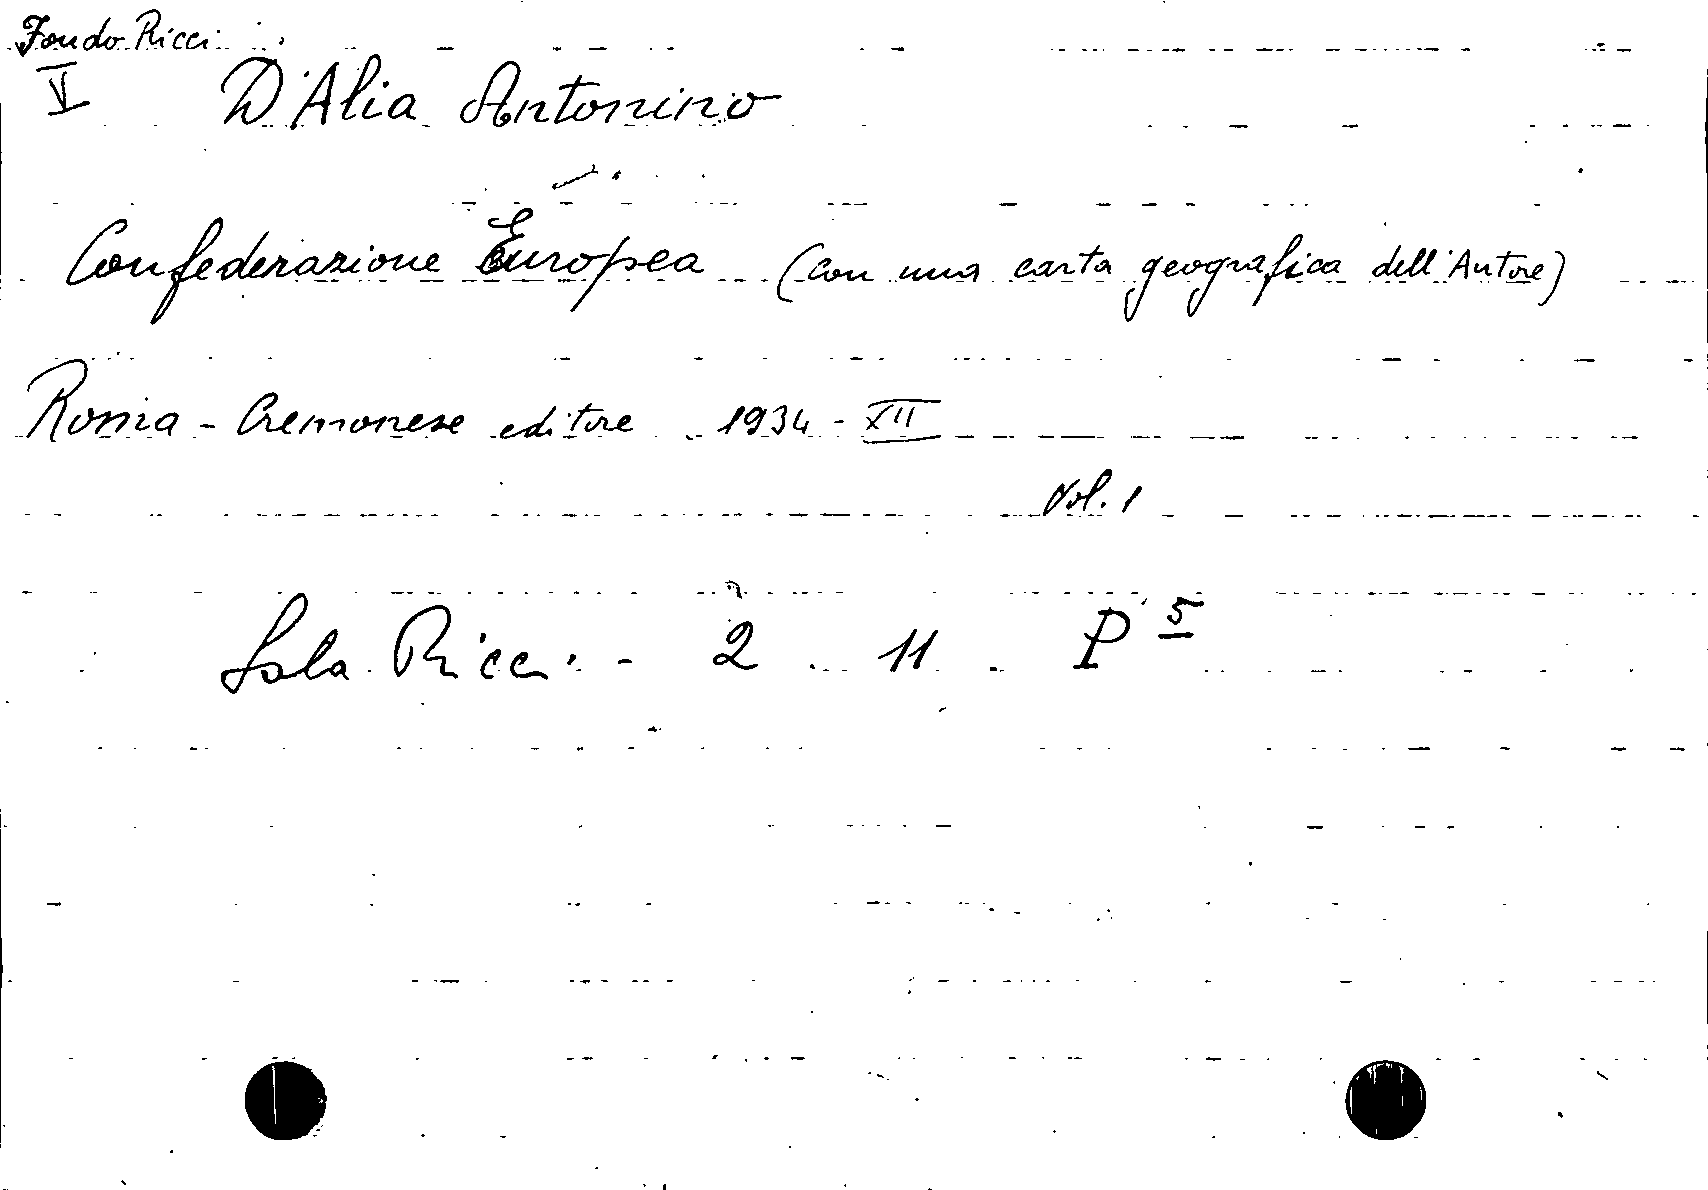 Fondo Ricci
V D'Alia Antonino
Confederazione Europea (con una carta geografica dell'Autore)
Roma - Cremonese editore 1934 - XII
Vol. 1
Sala Ricci - 2 11 P 5